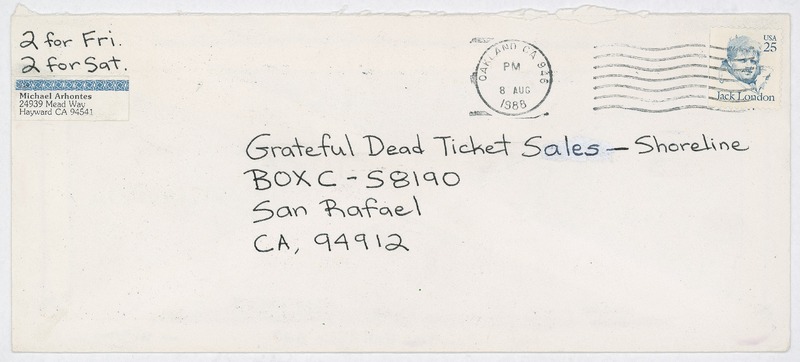 2 for Fri.
2 for Sat.
Michael Arhontes
24939 Mead Way
Hayward CA 94541
OAKLAND CA 946
PM
8 AUG
1988
USA
25
Jack London
Grateful Dead Ticket Sales – Shoreline
BOX C - S8190
San Rafael
CA, 94912